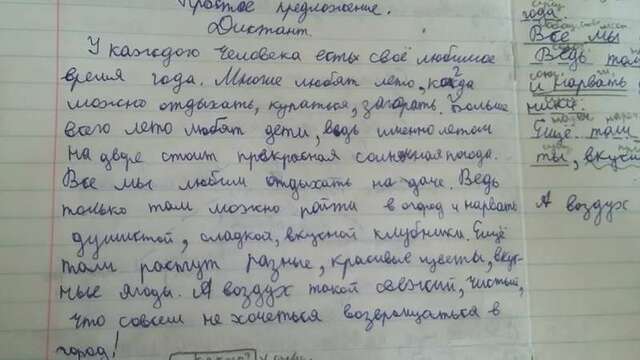 простые предложение.
Диктант
У каждого человека есть своё любимое
время года. Многие любят лето, когда
можно отдыхать, купаться, загорать. Больше
всего лето любят дети, ведь именно летом
на дворе стоит прекрасная солнечная погода.
Все мы любим отдыхать на даче. Ведь
только там можно пойти в огород и нарвать
душистой, сладкой, вкусной клубники. Ещё
там растут разные, красивые цветы, вкус-
ные ягоды. А воздух такой свежий, чистый,
что совсем не хочеться возвращаться в
город!
года
Все мы
Ведь то
и нарвать
ники.
Еще там
ты, вкус
А воздух